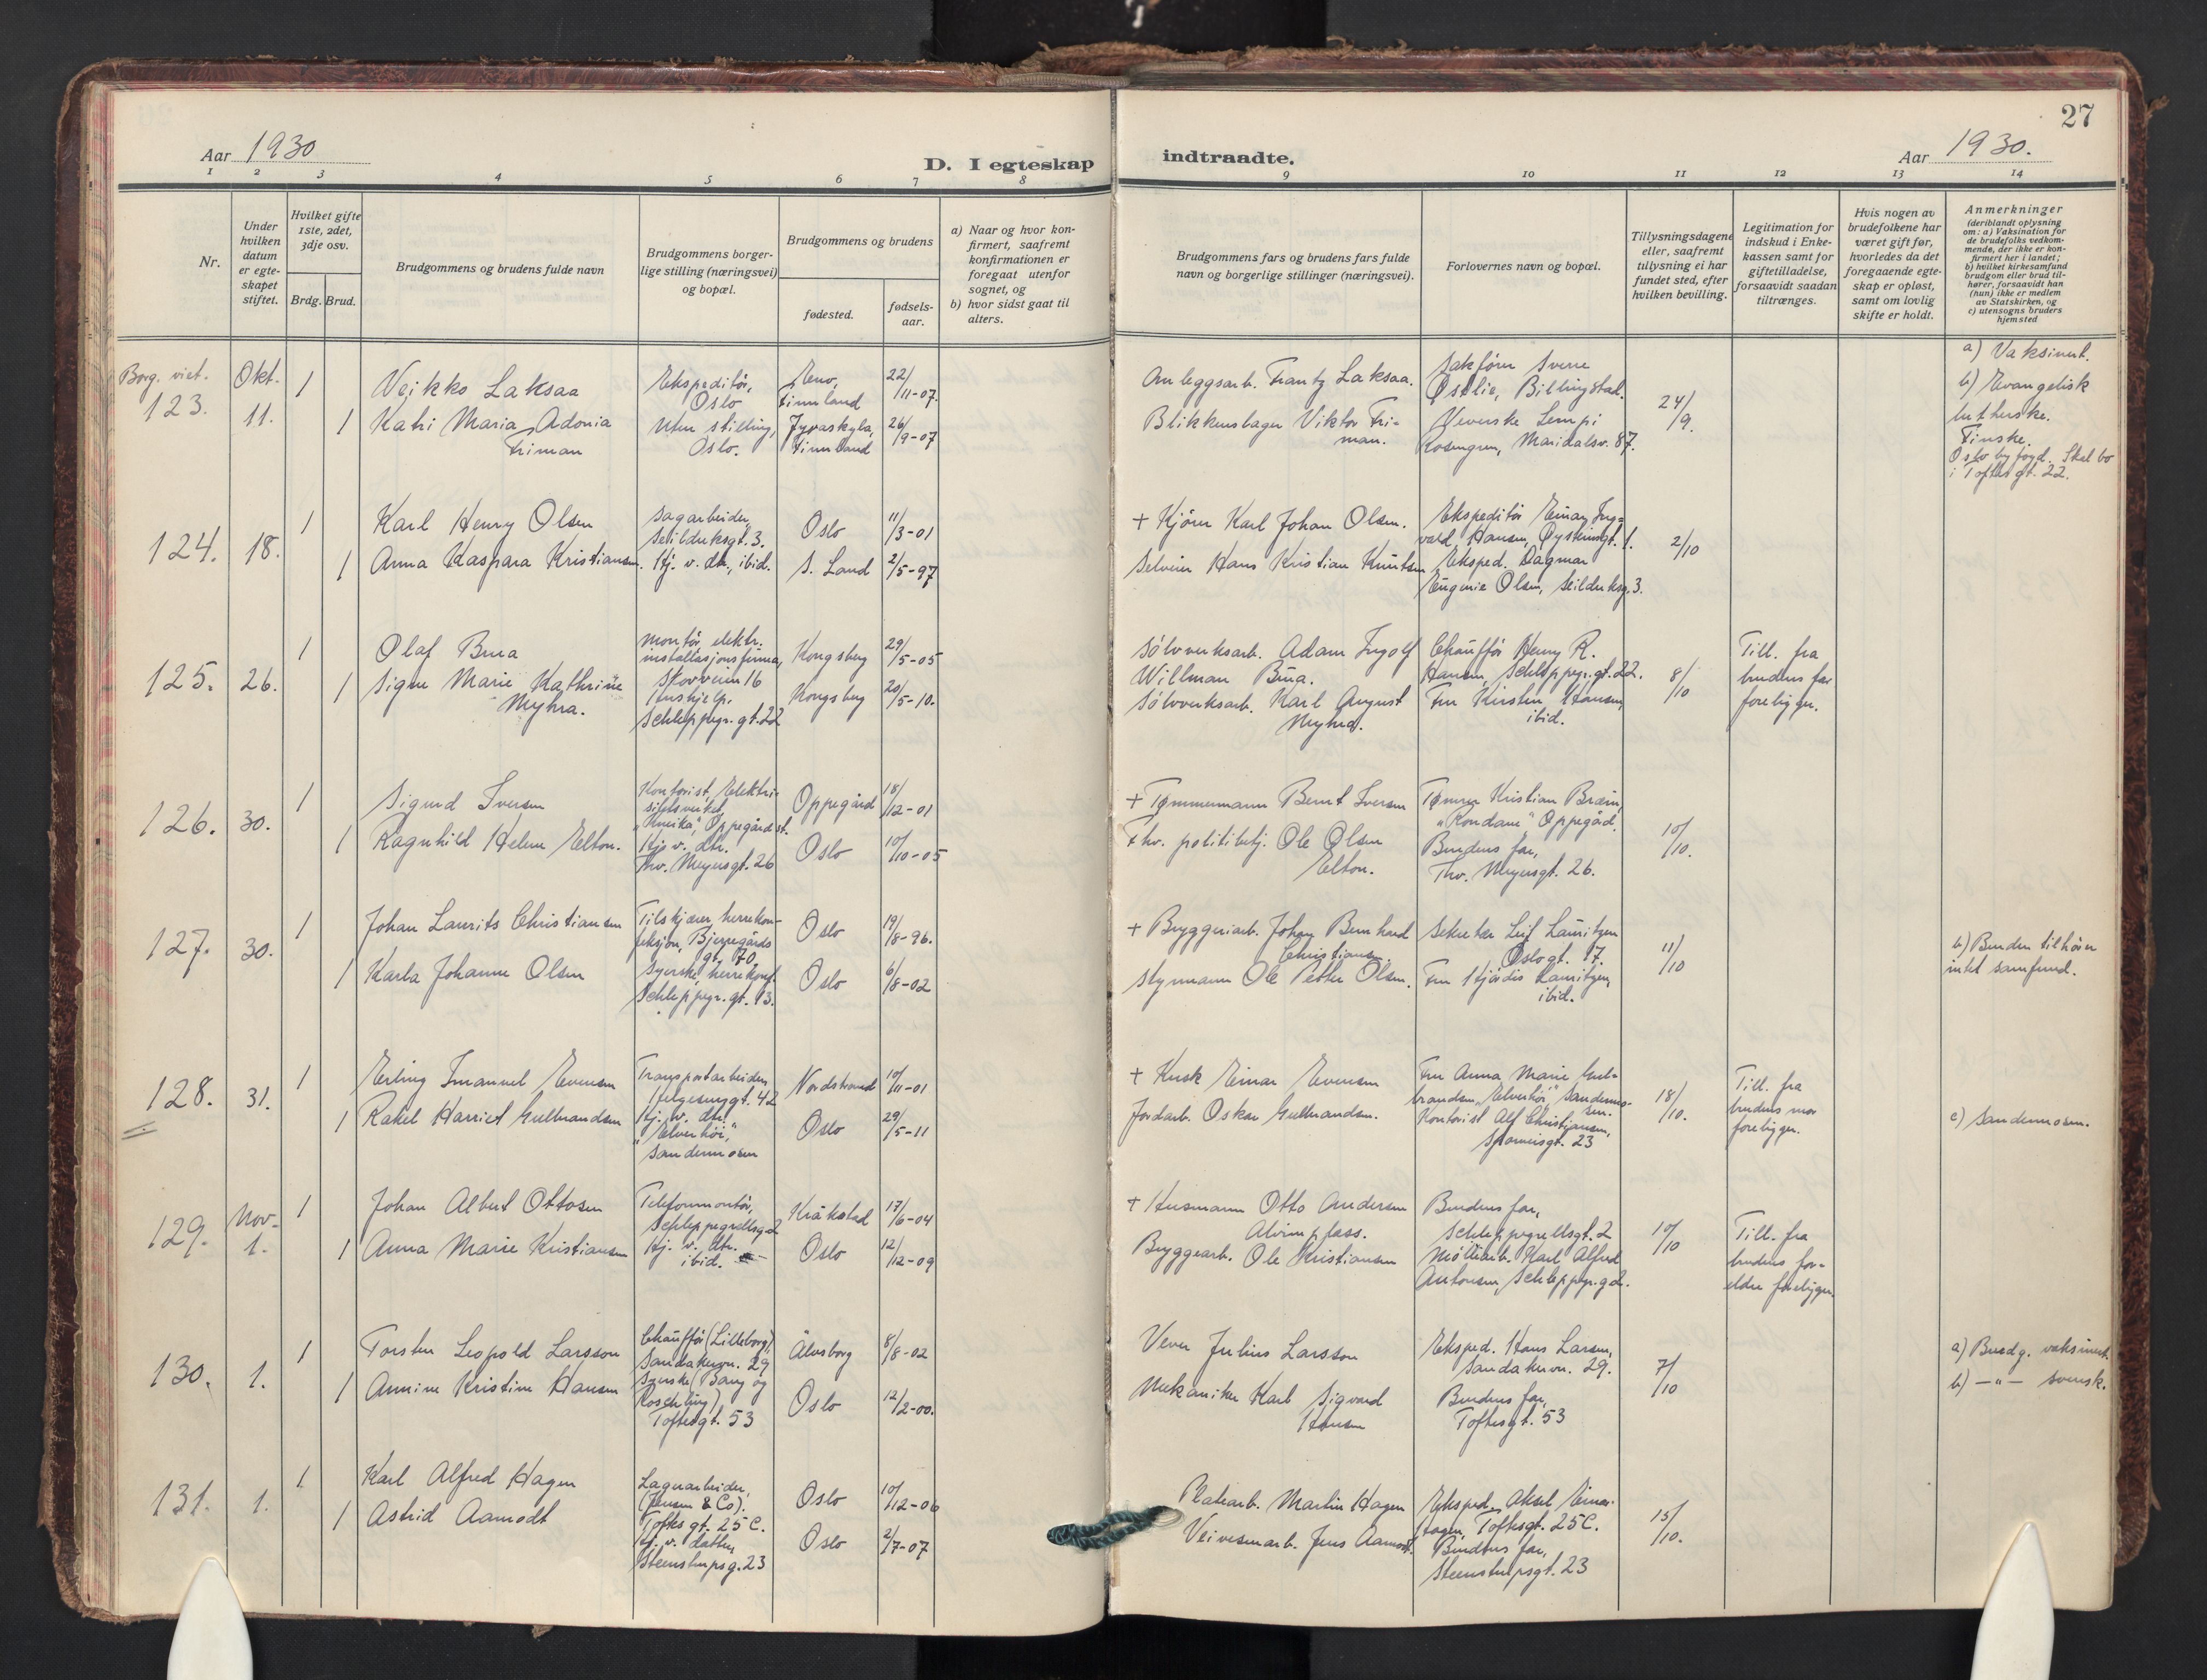 27
Aar 1930
D. I egteskap indtraadte.
Aar 1930.
1 2 3 4 5 6 7 8 9 10 11 12 13 14
Nr.
Under hvilken datum er egteskapet stiftet.
Hvilket gifte 1ste, 2det, 3dje osv.
Brdg. Brud.
Brudgommens og brudens fulde navn
Brudgommens borgerlige stilling (næringsvei) og bopæl.
Brudgommens og brudens
fødested.
fødselsaar.
a) Naar og hvor konfirmert, saafremt konfirmationen er foregaat utenfor sognet, og
b) hvor sidst gaat til alters.
Brudgommens fars og brudens fars fulde navn og borgerlige stillinger (næringsvei).
Forlovernes navn og bopæl.
Tillysningsdagene eller, saafremt tillysning ei har fundet sted, efter hvilken bevilling.
Legitimation for indskud i Enkekassen samt for giftetilladelse, forsaavidt saadan tiltrænges.
Hvis nogen av brudefolkene har været gift før, hvorledes da det foregaaende egteskap er opløst, samt om lovlig skifte er holdt.
Anmerkninger
(deriblandt oplysning om: a) Vaksination for de brudefolks vedkommende, der ikke er konfirmert her i landet;
b) hvilket kirkesamfund brudgom eller brud tilhører, forsaavidt han (hun) ikke er medlem av Statskirken, og
c) utensogns bruders hjemsted
Borg. viet.
123.
Okt.
11.
1
Veikko Laksaa
Ekspeditør,
Oslo
Finnland
22/11-07.
1
Katri Maria Adonia
Friman
Uten stilling,
Oslo.
Jyvaskyla,
Finnland
26/9-07
Anleggsarb. Frantz Laksaa.
Blikkenslager Viktor Friman.
Sakfører Sverre
Østlie, Billingstad.
Veverske Lempi
Rosengren, Maridalsv. 87.
24/9.
a) Vaksinert.
b) Evangelisk
lutherske.
Finske.
Oslo byfogd. Skal bo
i Toftesgt. 22.
124.
18.
1
Karl Henry Olsen
Sagarbeider,
Seilduksgt. 3.
Oslo
11/3-01
1
Anna Kaspara Kristiansen.
Hj. v. dtr., ibid.
S. Land
2/5-97
+ Kjører Karl Johan Olsen.
Selveier Hans Kristian Knutsen
Ekspeditør Einar Ingvald Hansen, Øystensgt. 1.
Eksped. Dagmar
Eugenie Olsen, Seilduksg. 3.
2/10
125.
26.
1
Olaf Brua
Montør, elektr.
installasjonsfirma,
Skovveien 16
Kongsberg
29/5-05
1
Signe Marie Kathrine
Myhra.
Hushjelp.
Schleppegr. gt. 22
Kongsberg
20/5-10.
Sølvverksarb. Adam Ingolf
Willman Brua.
Sølvverksarb. Karl August
Myhra.
Chauffør Henry R.
Hansen, Schleppegr. gt. 22.
Fru Kirsten Hansen,
ibid.
8/10
Till. fra
brudens far
foreligger.
126.
30.
1
Sigurd Iversen
Kontorist, Elektrisitetsverket,
Oppegård st.
Oppegård
18/12-01
1
Ragnhild Helene Elton.
Hj. v. dtr.
Thv. Meyersgt. 26
Oslo
10/10-05
+ Tømmermann Bernt Iversen
Fhv. politibetj. Ole Olsen
Elton.
Tømrer Kristian Bræin,
"Rondane" Oppegård.
Brudens far,
Thv. Meyersgt. 26.
10/10.
127.
30.
1
Johan Laurits Christiansen
Tilskjærer, herrekonfeksjon, Bjerregårds
gt. 70
Oslo
19/8-96.
1
Karla Johanne Olsen
Syerske, herrekonf.
Schleppegr. gt. 13.
Oslo
6/8-02
+ Bryggeriarb. Johan Bernhard
Christiansen.
Styrmann Ole Petter Olsen.
Sekretær Leif Lauritzen
Oslogt. 17.
Fru Hjørdis Lauritzen,
ibid.
11/10
b) Bruden tilhører
intet samfund.
128.
31.
1
Erling Imanuel Evensen
Transportarbeider,
Helgesensgt. 42
Nordstrand
10/11-01
1
Rakel Harriet Gulbrandsen
Hj. v. dtr.
"Elverhöi,"
Sandermosen
Oslo
29/5-11
+ Kusk Einar Evensen
Jordarb. Oskar Gulbrandsen.
Fru Anna Marie Gulbrandsen, "Elverhöi", Sandermosen.
Kontorist Alf Christiansen,
23
18/10.
Till. fra
brudens mor
foreligger.
c) Sandermosen.
129.
Nov.
1.
1
Johan Albert Ottosen
Telefonmontør,
Schleppegrellsg. 2
Kråkstad
17/6-04
1
Anna Marie Kristiansen
Hj. v. dtr.
ibid.
Oslo
12/12-09
+ Husmann Otto Andersen
Alvimplass.
Bryggearb. Ole Kristiansen
Brudens far,
Schleppegrellsgt. 2
Møllearb. Karl Alfred
Antonsen, Schleppegr. g 2.
10/10
Till. fra
brudens foreldre foreligger.
130.
1.
1
Torsten Leopold Larsson
Chauffør (Lilleborg),
Sandakervn. 29
Älvsborg
8/8-02
1
Annine Kristine Hansen
Syerske (Bang og
Roschling)
Toftesgt. 53
Oslo
12/2-00.
Vever Julius Larsson
Mekaniker Karl Sigvard
Hansen
Eksped. Hans Larsen,
Sandakervn. 29.
Brudens far,
Toftesgt. 53
7/10
a) Brudg. vaksinert.
b) —"— svensk.
131.
1.
1
Karl Alfred Hagen
Lagerarbeider,
(Jensen & Co).
Toftesgt. 25 C.
Oslo
10/12-06
1
Astrid Aamodt
Hj. v. datter,
Steenstrupsg. 23
Oslo
2/7-07
Platearb. Martin Hagen
Veivesenarb. Jens Aamodt.
Eksped. Aksel Einar
Hagen, Toftesgt. 25 C.
Brudens far,
Steenstrupsgt. 23
15/10.